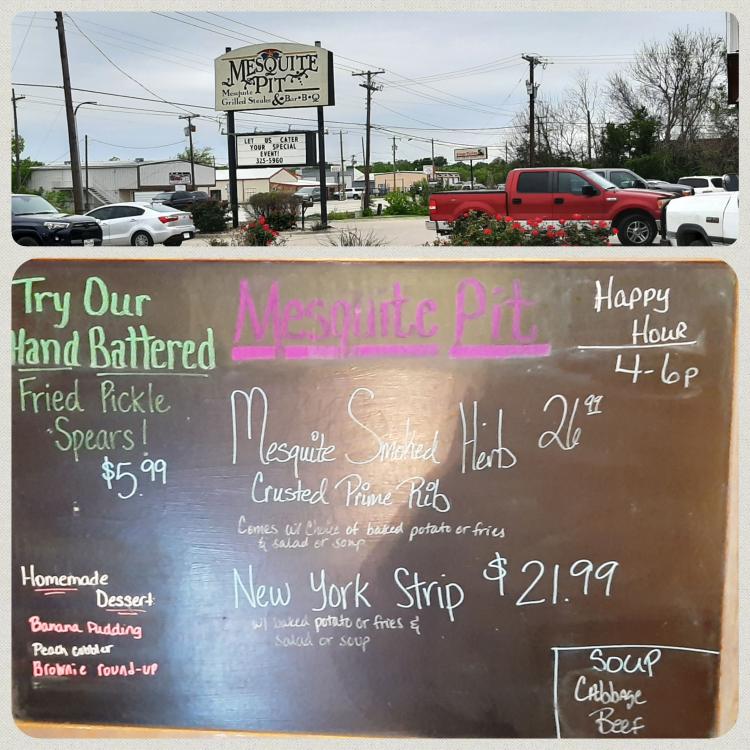 MESQUITE
PIT
Mesquite
Grilled Steaks & Bar•B•Q
LET US CATER
YOUR SPECIAL
EVENT!
325-5960
Try Our
Hand Battered
Fried Pickle
Spears!
$5.99
Homemade
Dessert
Banana Pudding
Peach cobbler
Brownie round-up
Mesquite Pit
Mesquite Smoked Herb 26.99
Crusted Prime Rib
Comes w/ Choice of baked potato or fries
& salad or soup
New York Strip $21.99
w/ baked potato or fries &
salad or soup
Happy
Hour
4-6p
SOUP
Cabbage
Beef